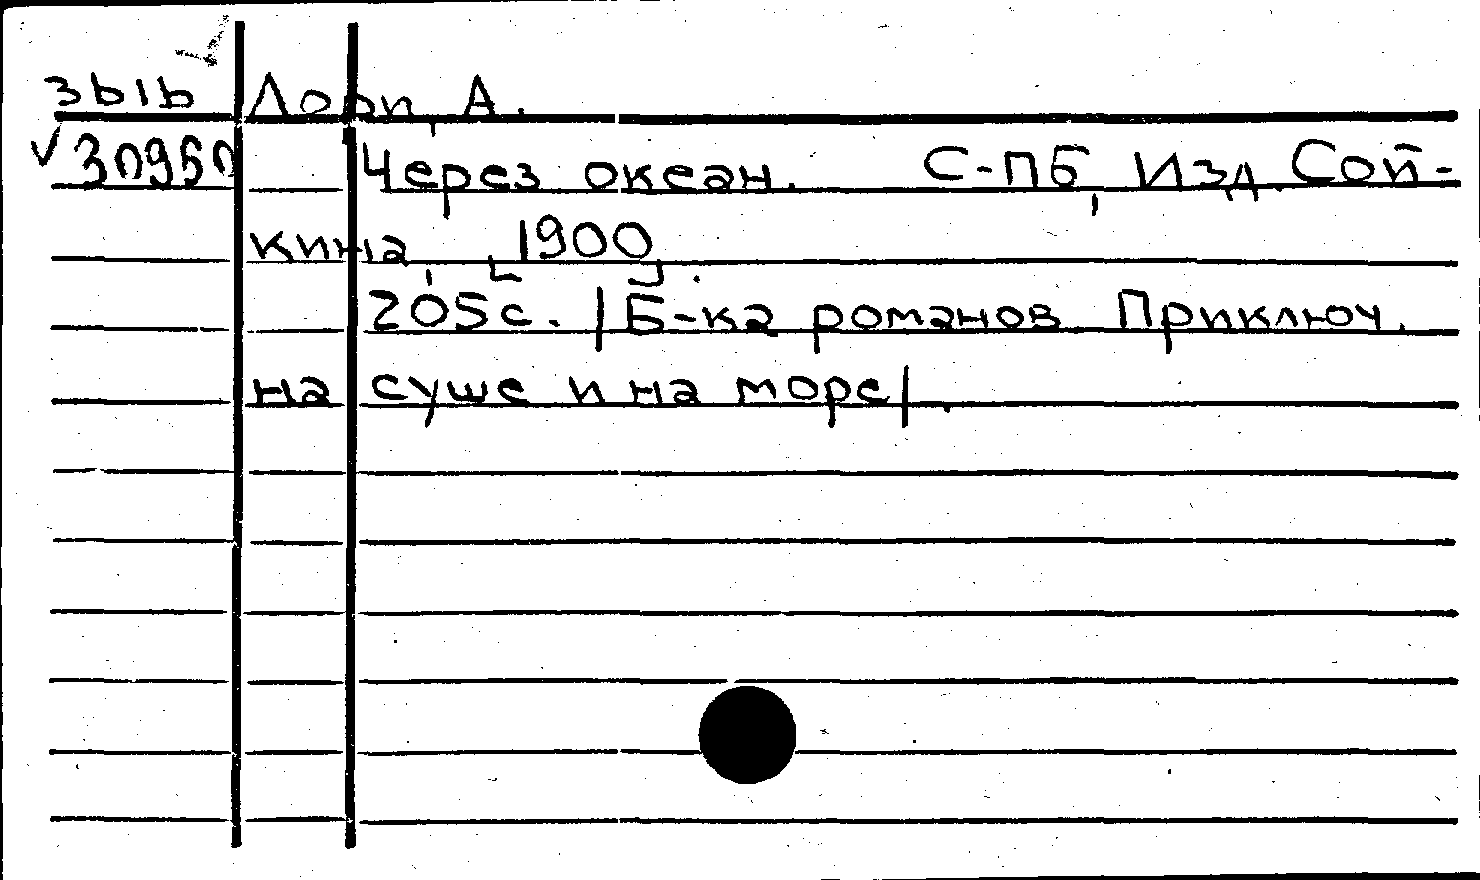 зыб Лори, А.
30960 Через океан. С-ПБ, Изд. Сой-
кина, [1900].
205с. /Б-ка романов Приключ.
на суше и на море/.